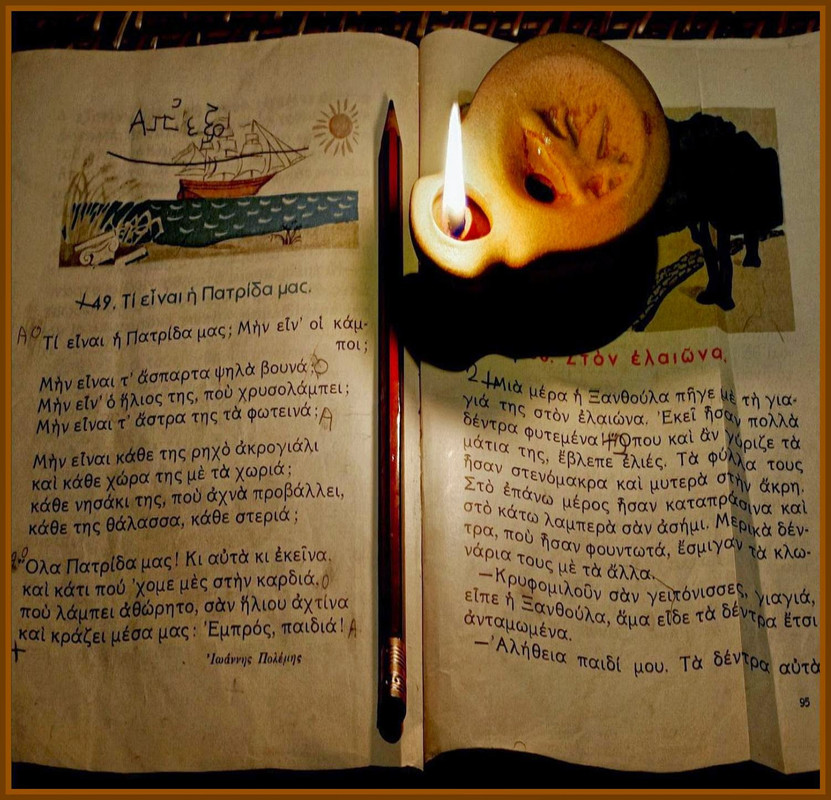 Ἀπ' ἔξω
49. Τί εἶναι ἡ Πατρίδα μας.
Τί εἶναι ἡ Πατρίδα μας; Μὴν εἶν' οἱ κάμ-
ποι;
Μὴν εἶναι τ' ἄσπαρτα ψηλὰ βουνά;
Μὴν εἶν' ὁ ἥλιος της, ποὺ χρυσολάμπει;
Μὴν εἶναι τ' ἄστρα της τὰ φωτεινά;
Μὴν εἶναι κάθε της ρηχὸ ἀκρογιάλι
καὶ κάθε χώρα της μὲ τὰ χωριά;
κάθε νησάκι της, ποὺ ἀχνὰ προβάλλει,
κάθε της θάλασσα, κάθε στεριά;
Ὅλα Πατρίδα μας! Κι αὐτὰ κι ἐκεῖνα,
καὶ κάτι πού 'χομε μὲς στὴν καρδιά,
ποὺ λάμπει ἀθώρητο, σὰν ἥλιου ἀχτίνα
καὶ κράζει μέσα μας: Ἐμπρός, παιδιά!
Ἰωάννης Πολέμης
Στὸν ἐλαιῶνα.
Μιὰ μέρα ἡ Ξανθούλα πῆγε μὲ τὴ για-
γιά της στὸν ἐλαιώνα. Ἐκεῖ ἦσαν πολλὰ
δέντρα φυτεμένα. Ὅπου καὶ ἂν γύριζε τὰ
μάτια της, ἔβλεπε ἐλιές. Τὰ φύλλα τους
ἦσαν στενόμακρα καὶ μυτερὰ στὴν ἄκρη.
Στὸ ἐπάνω μέρος ἦσαν καταπράσινα καὶ
στὸ κάτω λαμπερὰ σὰν ἀσήμι. Μερικὰ δέν-
τρα, ποὺ ἦσαν φουντωτά, ἔσμιγαν τὰ κλω-
νάρια τους μὲ τὰ ἄλλα.
—Κρυφομιλοῦν σὰν γειτόνισσες, γιαγιά,
εἶπε ἡ Ξανθούλα, ἅμα εἶδε τὰ δέντρα ἔτσι
ἀνταμωμένα.
—Ἀλήθεια παιδί μου. Τὰ δέντρα αὐτὰ
95